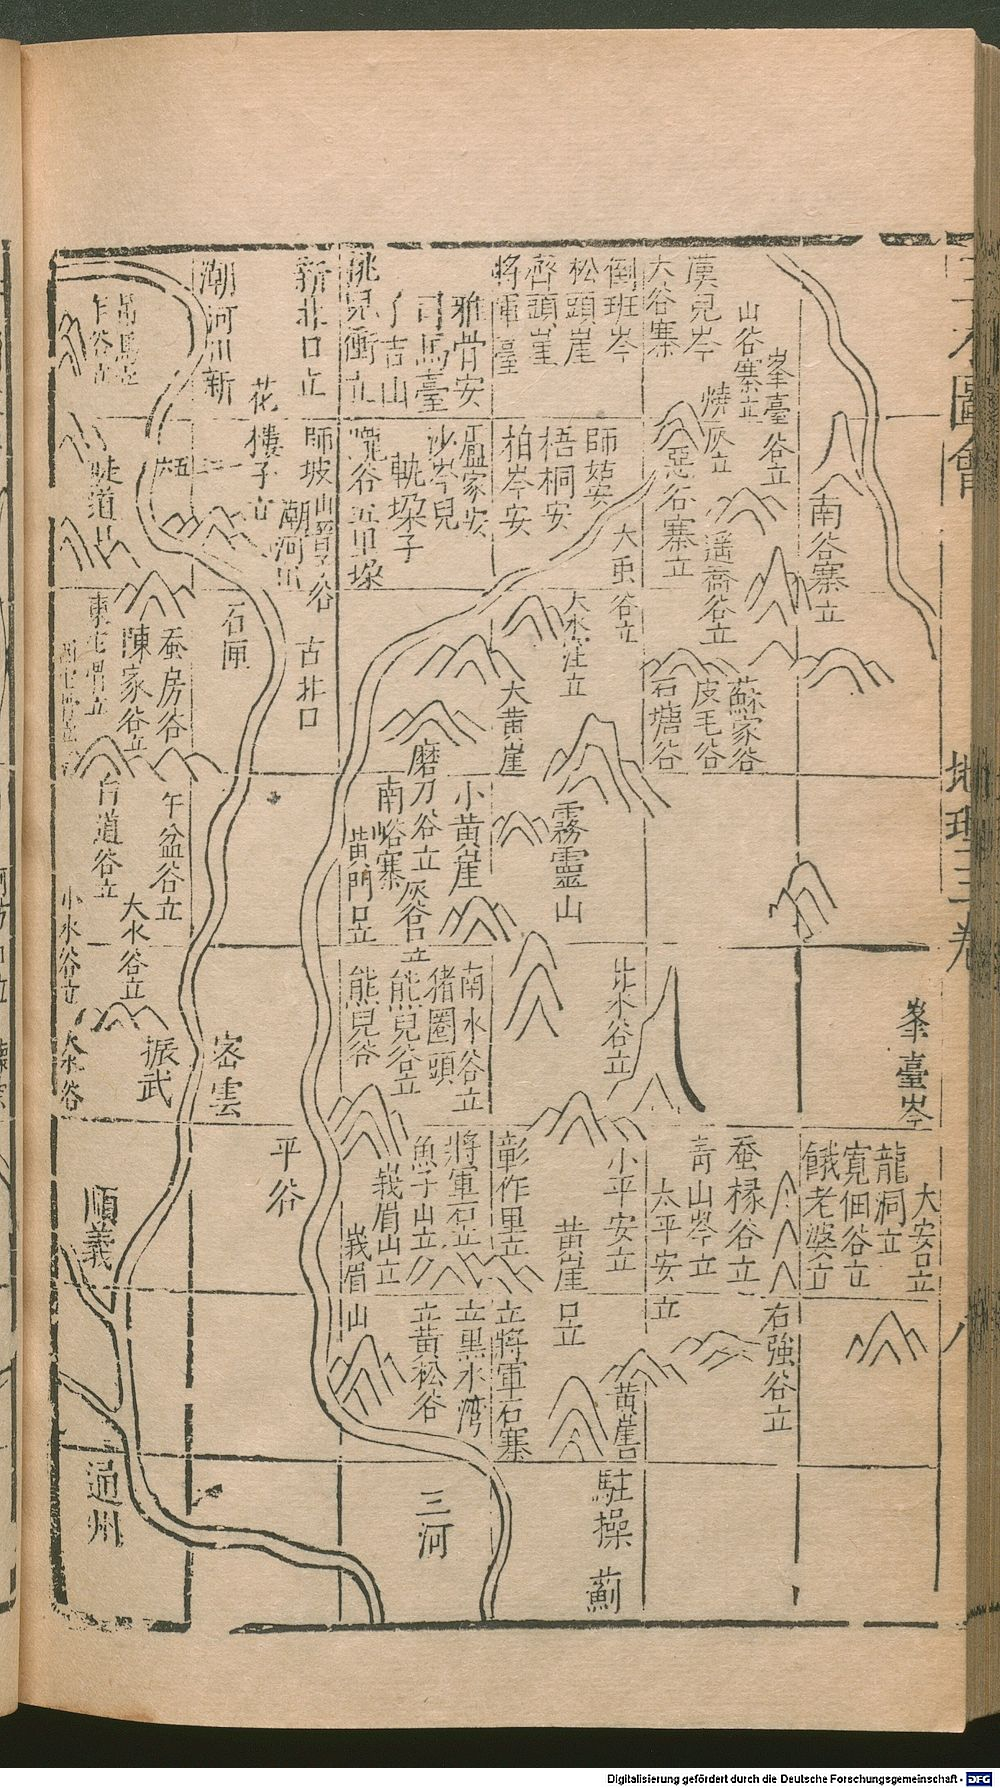 地理三卷
八
漢兒岑
大谷寨
倒班岑
松頭崖
齊頭崖
將軍臺
雅骨安
司馬臺
了吉山
新北口
潮河川新
山谷寨立
峯臺谷立
燒灰立
惡谷寨立
南谷寨立
遥喬谷立
師姑安
梧桐安
柏岑安
盧家安
沙岑兒
花樓子
師坡
潮河川
大虫谷立
大水洼立
古北口
石匣
蘇家谷
皮毛谷
石塘谷
大黄崖
陳家谷立
蚕房谷
磨刀谷立
小黄崖
南峪寨
黄門口立
灰谷口立
霧靈山
午盆谷立
白道谷立
大水谷立
小水谷立
峯臺岑
北水谷立
南水谷立
猪圈頭
熊兒谷立
熊兒谷
密雲
振武
大水谷
大安口立
龍洞立
寬佃谷立
餓老婆立
蚕椽谷立
青山岑立
太平安立
小平安立
黄崖口立
彰作里立
將軍石立
魚子山立
峩眉山立
峩眉山
平谷
順義
石強谷立
黄崖口
立將軍石寨
立黒水灣
立黄松谷
駐操
薊
三河
通州
Digitalisierung gefördert durch die Deutsche Forschungsgemeinschaft - DFG